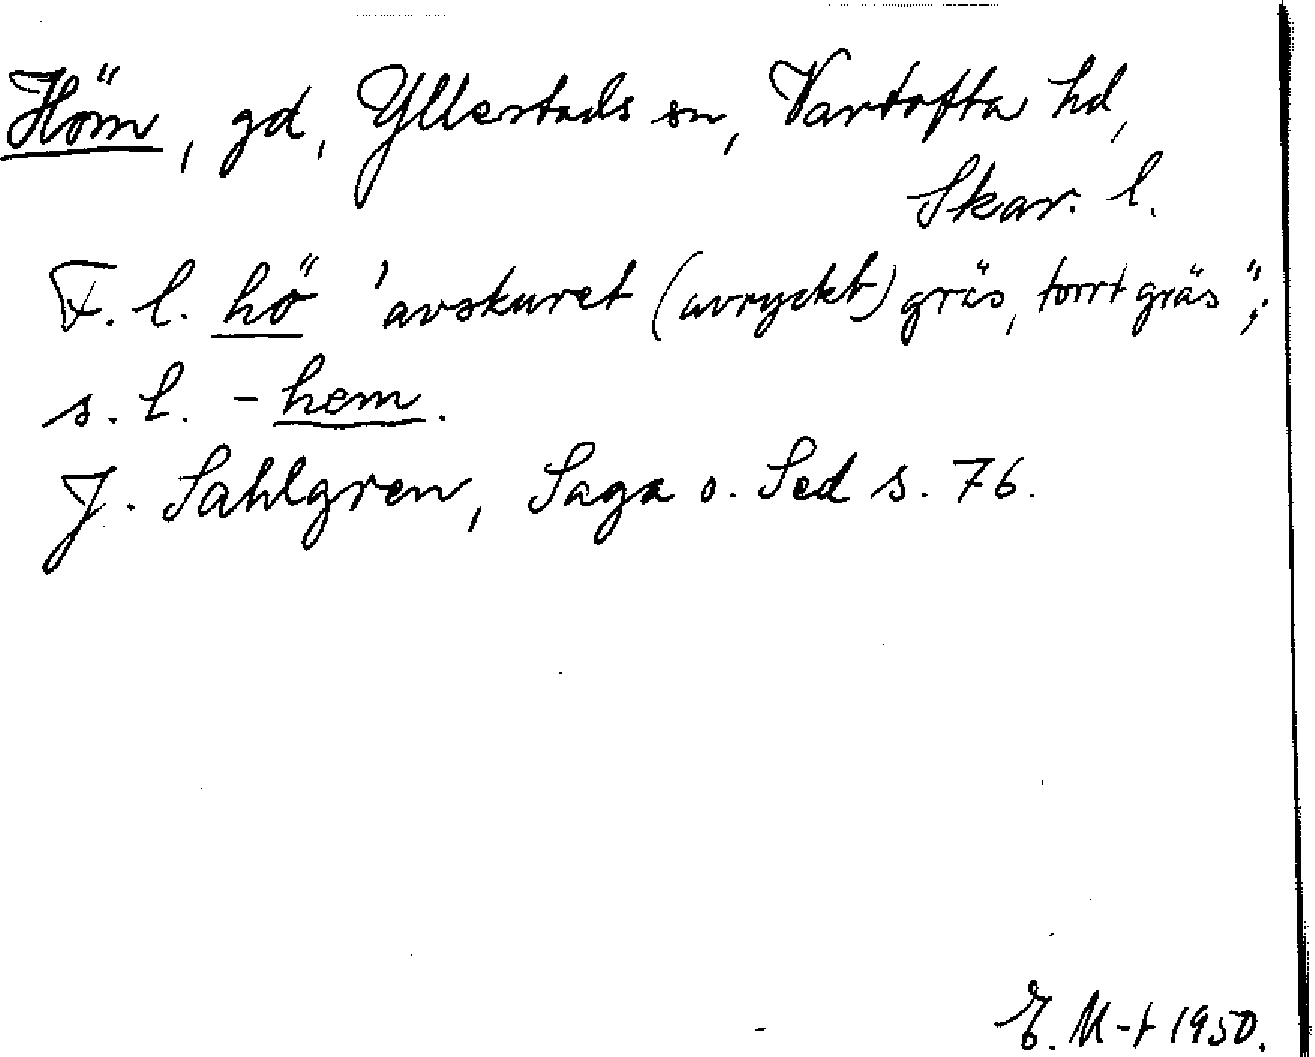 Höm, gd, Yllestads sn, Vartofta hd,
Skar. l.
F. l. hö 'avskuret (avryckt) gräs, torrt gräs";
s. l. -hem.
J. Sahlgren, Saga o. Sed s. 76.
E. M-t 1950.